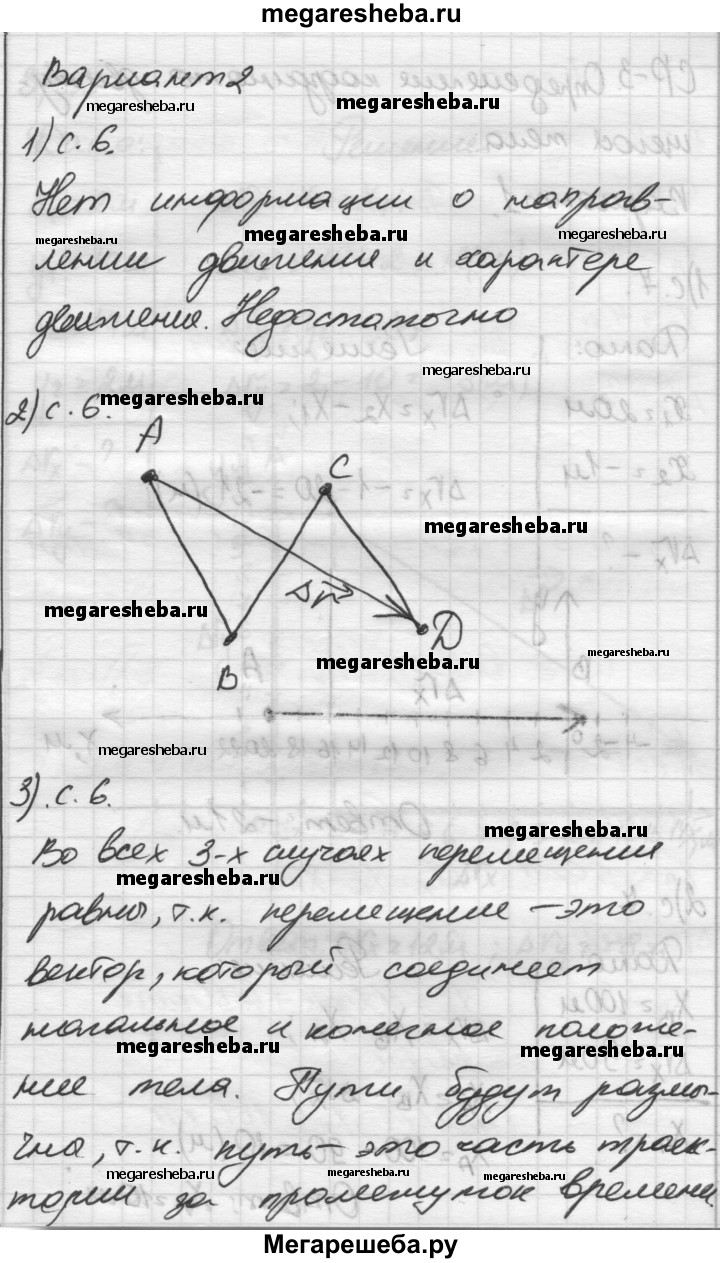 megaresheba.ru
Вариант 2
megaresheba.ru
megaresheba.ru
1) с. 6.
Нет информации о направ-
megaresheba.ru
megaresheba.ru
лении движения и характере
движения. Недостаточно
megaresheba.ru
megaresheba.ru
2) с. 6.
A
C
megaresheba.ru
Δr
megaresheba.ru
D
megaresheba.ru
megaresheba.ru
B
megaresheba.ru
3). с. 6.
megaresheba.ru
Во всех 3-х случаях перемещения
megaresheba.ru
равны, т.к. перемещение – это
вектор, который соединяет
начальное и конечное положе-
megaresheba.ru
megaresheba.ru
ние тела. Пути будут разли-
чны, т.к. путь – это часть траек-
megaresheba.ru
megaresheba.ru
megaresheba.ru
тории за промежуток времени.
Мегарешеба.ру